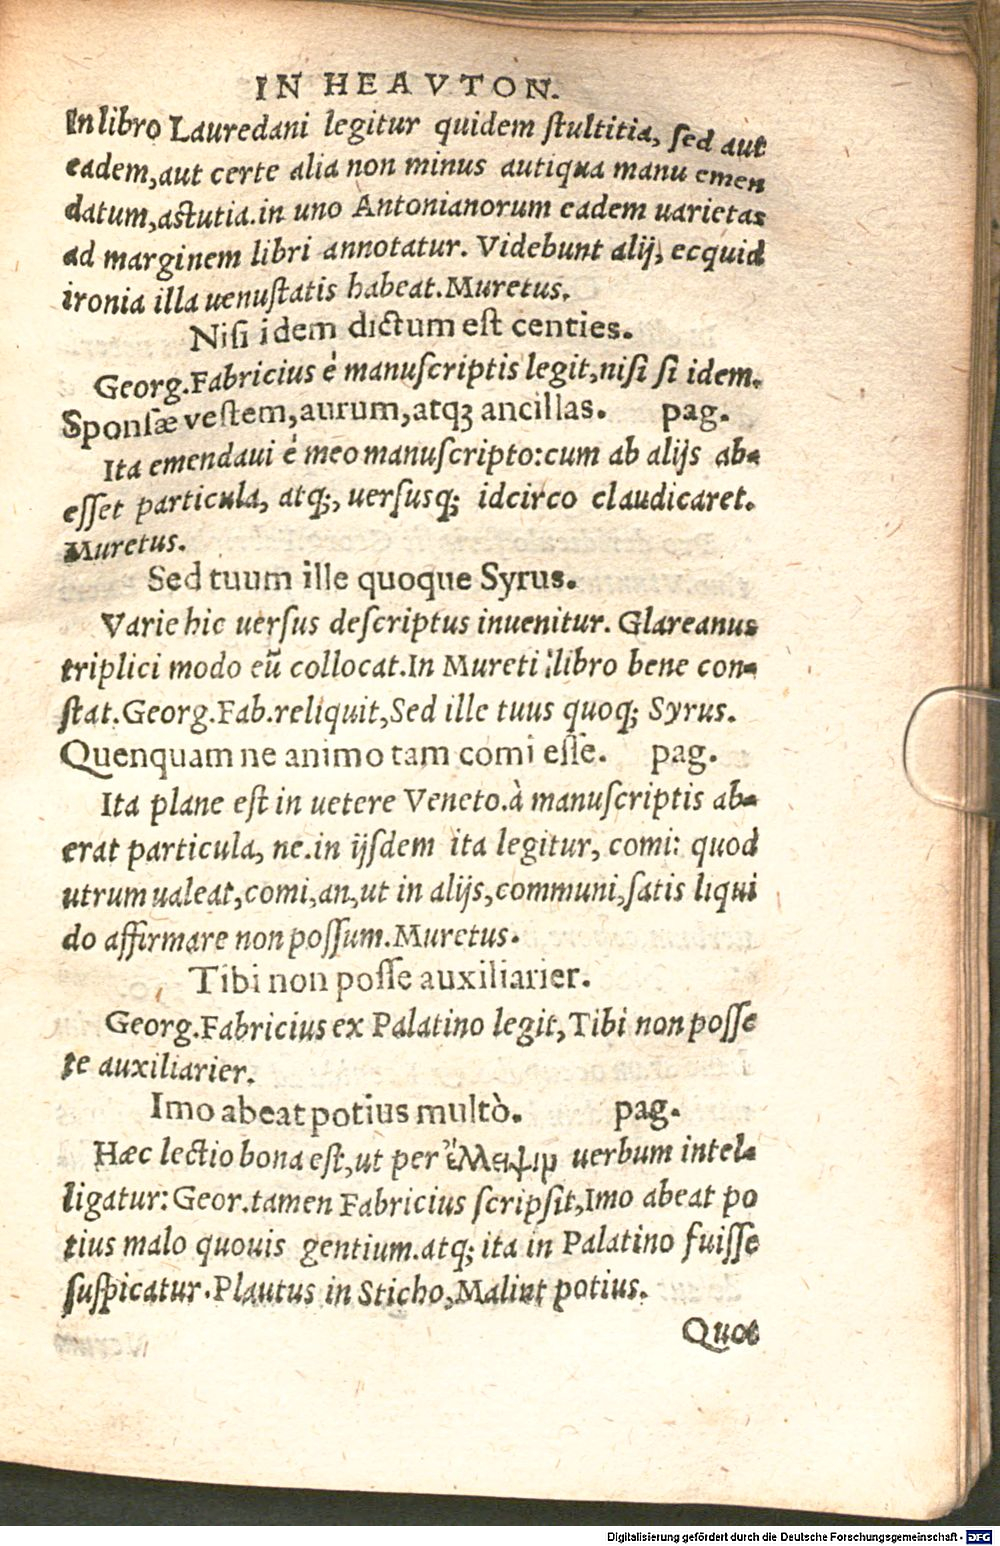 IN HEAVTON.
In libro Lauredani legitur quidem stultitia, sed aut
eadem, aut certe alia non minus autiqua manu emen
datum, astutia. in uno Antonianorum eadem uarietas
ad marginem libri annotatur. Videbunt alij, ecquid
ironia illa uenustatis habeat. Muretus.
Nisi idem dictum est centies.
Georg. Fabricius é manuscriptis legit, nisi si idem.
Sponsæ vestem, aurum, atqꝫ ancillas. pag.
Ita emendaui é meo manuscripto: cum ab alijs ab-
esset particula, atq;, uersusq; idcirco claudicaret.
Muretus.
Sed tuum ille quoque Syrus.
Varie hic uersus descriptus inuenitur. Glareanus
triplici modo eũ collocat. In Mureti libro bene con-
stat. Georg. Fab. reliquit, Sed ille tuus quoq; Syrus.
Quenquam ne animo tam comi esse. pag.
Ita plane est in uetere Veneto. à manuscriptis ab-
erat particula, ne. in ijsdem ita legitur, comi: quod
utrum ualeat, comi, an, ut in alijs, communi, satis liqui
do affirmare non possum. Muretus.
Tibi non posse auxiliarier.
Georg. Fabricius ex Palatino legit, Tibi non posse
te auxiliarier.
Imo abeat potius multò. pag.
Hæc lectio bona est, ut per uerbum intel-
ligatur: Geor. tamen Fabricius scripsit, Imo abeat po
tius malo quouis gentium. atq; ita in Palatino fuisse
suspicatur. Plautus in Sticho, Malint potius.
Quot
Digitalisierung gefördert durch die Deutsche Forschungsgemeinschaft - DFG